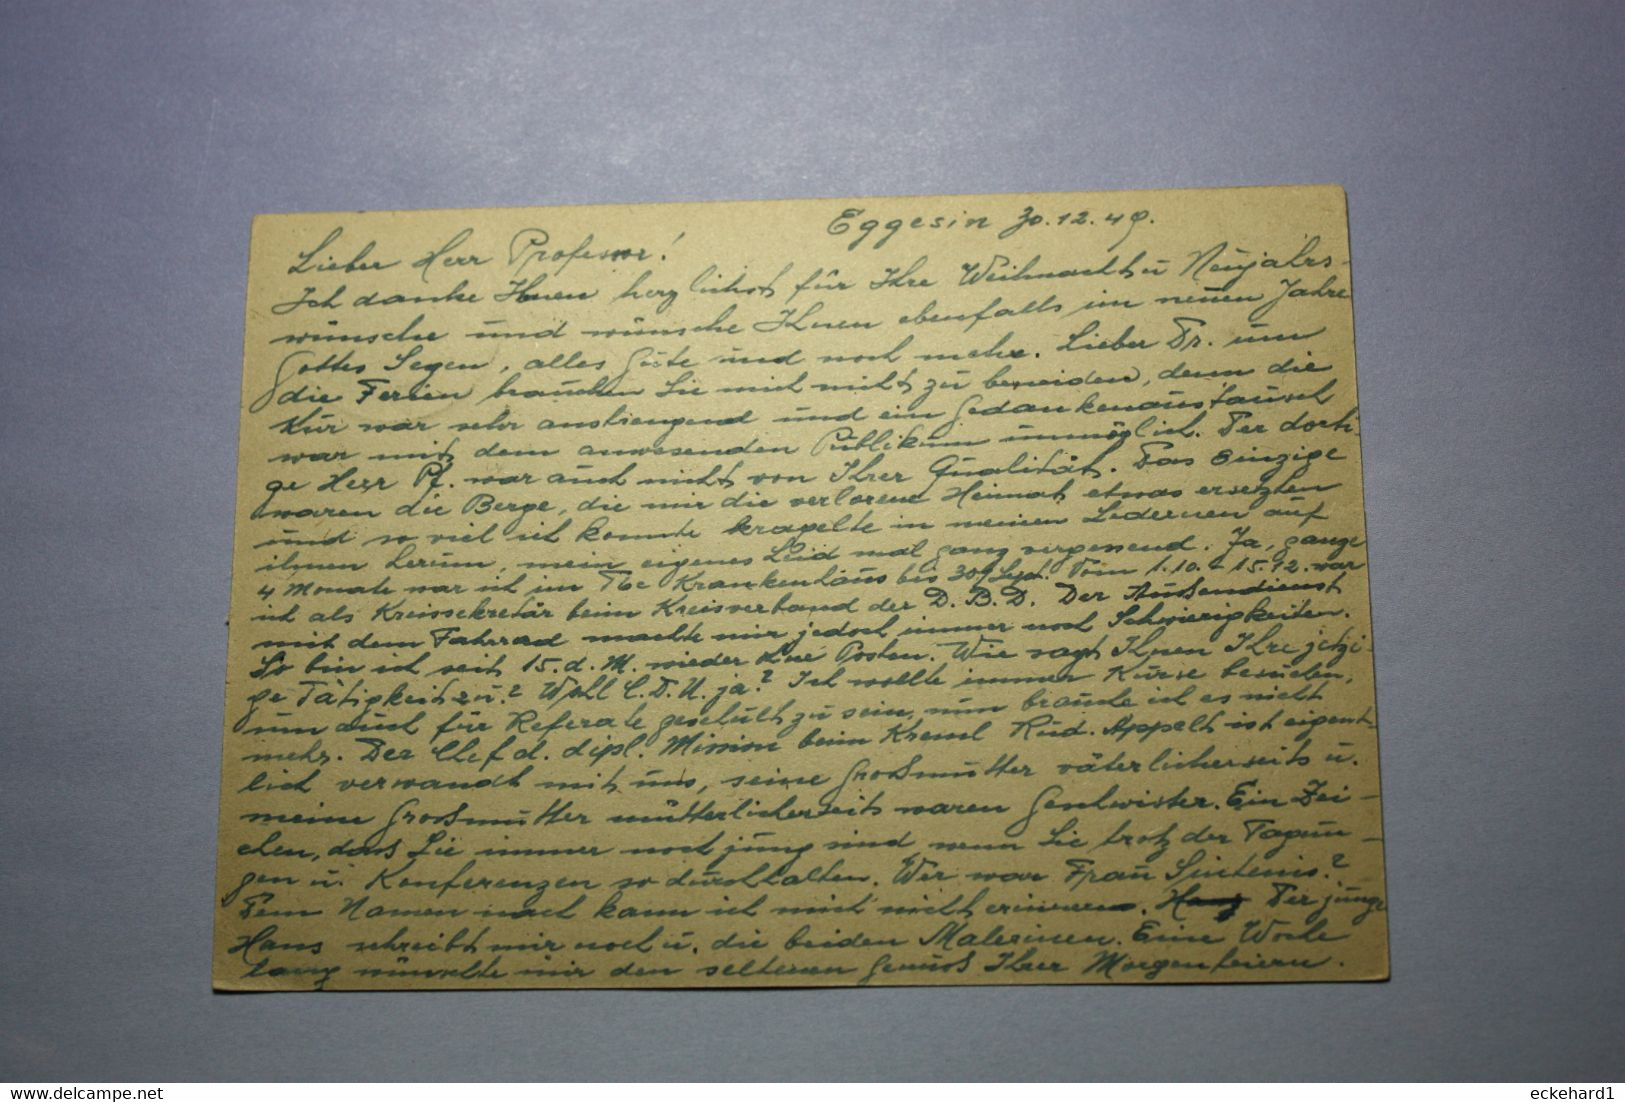 Eggesin 30.12.49.
Lieber Herr Professor!
Ich danke Ihnen herzlichst für Ihre Weihnacht u Neujahrs-
wünsche und wünsche Ihnen ebenfalls im neuen Jahre
Gottes Segen, alles Gute und noch mehr. Lieber Dr. um
die Ferien brauchen Sie mich nicht zu beneiden, denn die
Kur war sehr anstrengend und ein Gedankenaustausch
war mit dem anwesenden Publikum unmöglich. Der dorti-
ge Herr Pf. war auch nicht von Ihrer Qualität. Das Einzige
waren die Berge, die mir die verlorene Heimat etwas ersetzten
und so viel ich konnte krapelte in meinen Ledernen auf
ihnen herum, mein eigenes Leid mal ganz vergessend. Ja, ganze
4 Monate war ich im Tbc Krankenhaus bis 30. Sept. Vom 1.10. - 15.12. war
ich als Kreissekretär beim Kreisverband der D.B.D. Der Außendienst
mit dem Fahrrad machte mir jedoch immer noch Schwierigkeiten.
So bin ich seit 15. d. M. wieder Posten. Wie sagt Ihnen Ihre jetzi-
ge Tätigkeit zu? Wohl C.D.U. ja? Ich wollte immer Kurse besuchen,
um auch für Referate geschult zu sein, nun brauche ich es nicht
mehr. Der Chef d. dipl. Mission beim Kreml Rud. Appelt ist eigent-
lich verwandt mit uns, seine Großmutter väterlicherseits u.
meine Großmutter mütterlicherseits waren Geschwister. Ein Zei-
chen, dass Sie immer noch jung sind, wenn Sie trotz der Tagun-
gen u. Konferenzen so durchhalten. Wer war Frau Sintenis?
Dem Namen nach kann ich mich nicht erinnern. Der junge
Hans schreibt mir noch u. die beiden Malerinen. Eine Woche
lang wünschte mir den seltenen Genuss Ihrer Morgenfeiern.
eckehard1